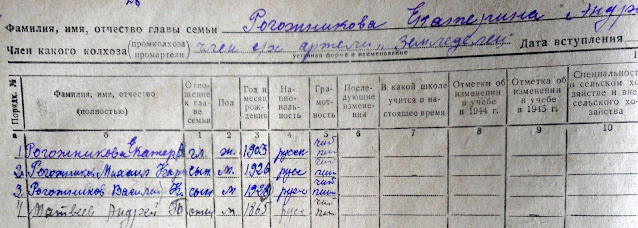 26
Фамилия, имя, отчество главы семьи Рогожникова Екатерина Андр
Член какого колхоза (промколхоза промартели) член с/х артели „Земледелец" Дата вступления
уставная форма и наименование
Порядк. № Фамилия, имя, отчество (полностью) Отношение к главе семьи Пол Год и месяц рождения Национальность Грамотность Последующие изменения В какой школе учится в настоящее время Отметки об изменении в учебе в 1944 г. Отметка об изменении в учебе в 1945 г. Специальность в сельском хозяйстве и вне сельского хозяйства
а б 1 2 3 4 5 6 7 8 9 10
1 Рогожникова Екатер гл. ж. 1903 русск чит пиш
2. Рогожников Михаил сын м. 1926 русс чит пиш
3. Рогожников Василий сын м. русск чит пиш
4 Матвеев Андрей отец м 1865 русс чит пиш